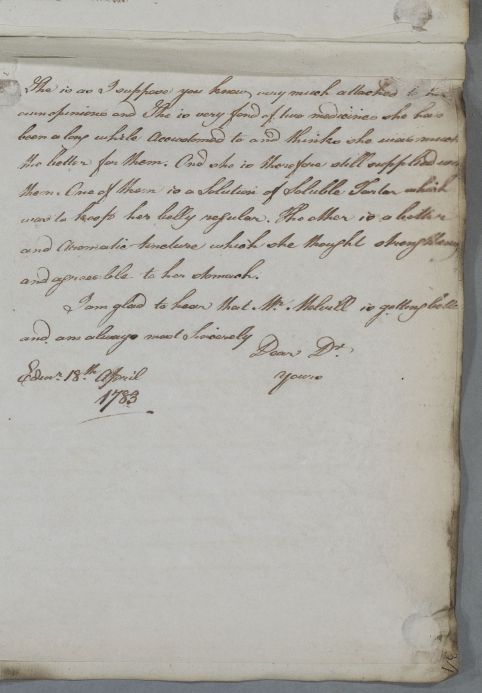 She is as I suppose you know very much attached to
own opinions and She is very fond of two medicines she has
been a long while accustomed to and thinks she was much
the better for them. And she is therefore still supplied
them. One of them is a Solution of Soluble Tartar which
was to keep her belly regular. The other is a bitter
and aromatic tincture which she thought
and agreeable to her stomach.
I am glad to hear that Mr. Melvill is getting
and am always most Sincerely
Dear Dr.
Yours
Edinr. 18th April
1783